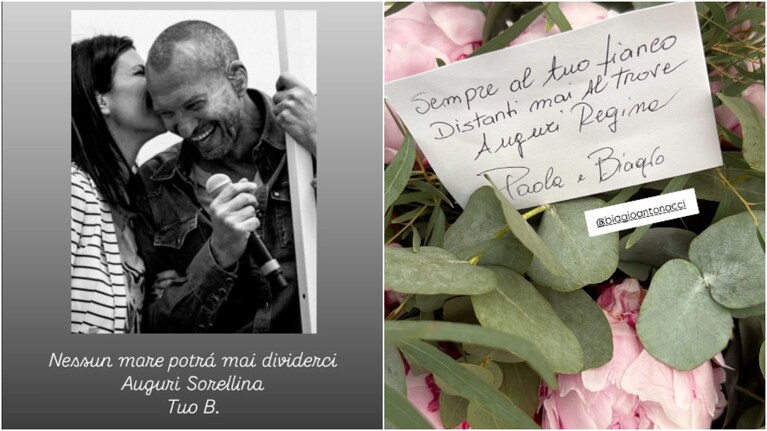 Nessun mare potrá mai dividerci
Auguri Sorellina
Tuo B.
Sempre al tuo fianco
Distanti mai Al trove
Auguri Regina
Paola e Biagio
@biagioantonacci